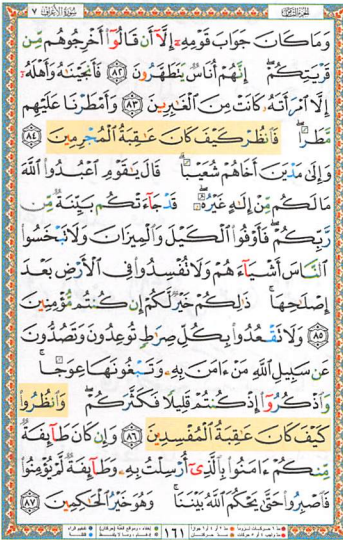 سورة الأعراف ٧
الجزء الثامن
وَمَا كَانَ جَوَابَ قَوْمِهِۦٓ إِلَّآ أَن قَالُوٓا۟ أَخْرِجُوهُم مِّن
قَرْيَتِكُمْ ۖ إِنَّهُمْ أُنَاسٌ يَتَطَهَّرُونَ ٨٢ فَأَنجَيْنَـٰهُ وَأَهْلَهُۥٓ
إِلَّا ٱمْرَأَتَهُۥ كَانَتْ مِنَ ٱلْغَـٰبِرِينَ ٨٣ وَأَمْطَرْنَا عَلَيْهِم
مَّطَرًا ۖ فَٱنظُرْ كَيْفَ كَانَ عَـٰقِبَةُ ٱلْمُجْرِمِينَ ٨٤
وَإِلَىٰ مَدْيَنَ أَخَاهُمْ شُعَيْبًا ۗ قَالَ يَـٰقَوْمِ ٱعْبُدُوا۟ ٱللَّهَ
مَا لَكُم مِّنْ إِلَـٰهٍ غَيْرُهُۥ ۖ قَدْ جَآءَتْكُم بَيِّنَةٌ مِّن
رَّبِّكُمْ ۖ فَأَوْفُوا۟ ٱلْكَيْلَ وَٱلْمِيزَانَ وَلَا تَبْخَسُوا۟
ٱلنَّاسَ أَشْيَآءَهُمْ وَلَا تُفْسِدُوا۟ فِى ٱلْأَرْضِ بَعْدَ
إِصْلَـٰحِهَا ۚ ذَٰلِكُمْ خَيْرٌ لَّكُمْ إِن كُنتُم مُّؤْمِنِينَ
٨٥ وَلَا تَقْعُدُوا۟ بِكُلِّ صِرَٰطٍ تُوعِدُونَ وَتَصُدُّونَ
عَن سَبِيلِ ٱللَّهِ مَنْ ءَامَنَ بِهِۦ وَتَبْغُونَهَا عِوَجًا ۚ
وَٱذْكُرُوٓا۟ إِذْ كُنتُمْ قَلِيلًا فَكَثَّرَكُمْ ۖ وَٱنظُرُوا۟
كَيْفَ كَانَ عَـٰقِبَةُ ٱلْمُفْسِدِينَ ٨٦ وَإِن كَانَ طَآئِفَةٌ
مِّنكُمْ ءَامَنُوا۟ بِٱلَّذِىٓ أُرْسِلْتُ بِهِۦ وَطَآئِفَةٌ لَّمْ يُؤْمِنُوا۟
فَٱصْبِرُوا۟ حَتَّىٰ يَحْكُمَ ٱللَّهُ بَيْنَنَا ۚ وَهُوَ خَيْرُ ٱلْحَـٰكِمِينَ ٨٧
١٦١